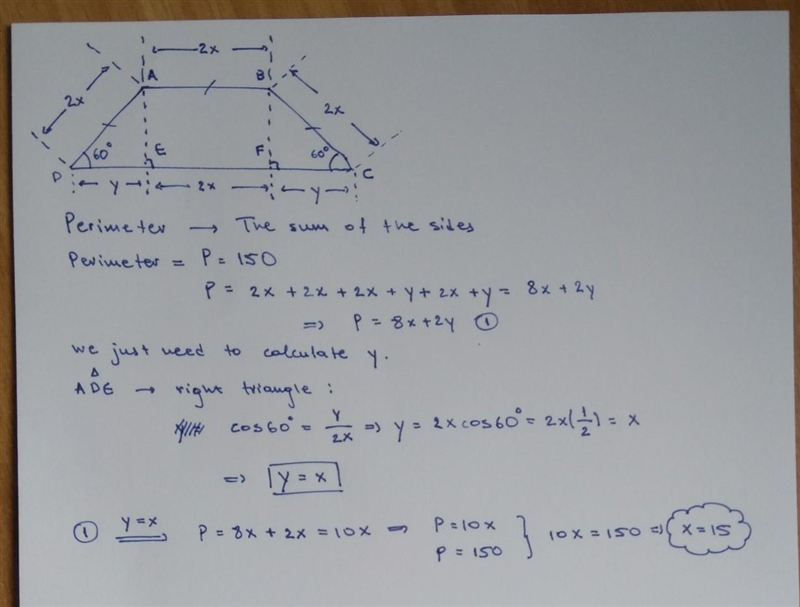 2x
A B
2x 2x
60° E F 60°
D C
y 2x y
Perimeter → The sum of the sides
Perimeter = P = 150
P = 2x + 2x + 2x + y + 2x + y = 8x + 2y
⇒ P = 8x + 2y ①
we just need to calculate y.
△
ADE → right triangle :
cos60° = y/2x ⇒ y = 2x cos60° = 2x(1/2) = x
⇒ y = x
① y = x P = 8x + 2x = 10x ⇒ P = 10x } 10x = 150 ⇒ x = 15
P = 150